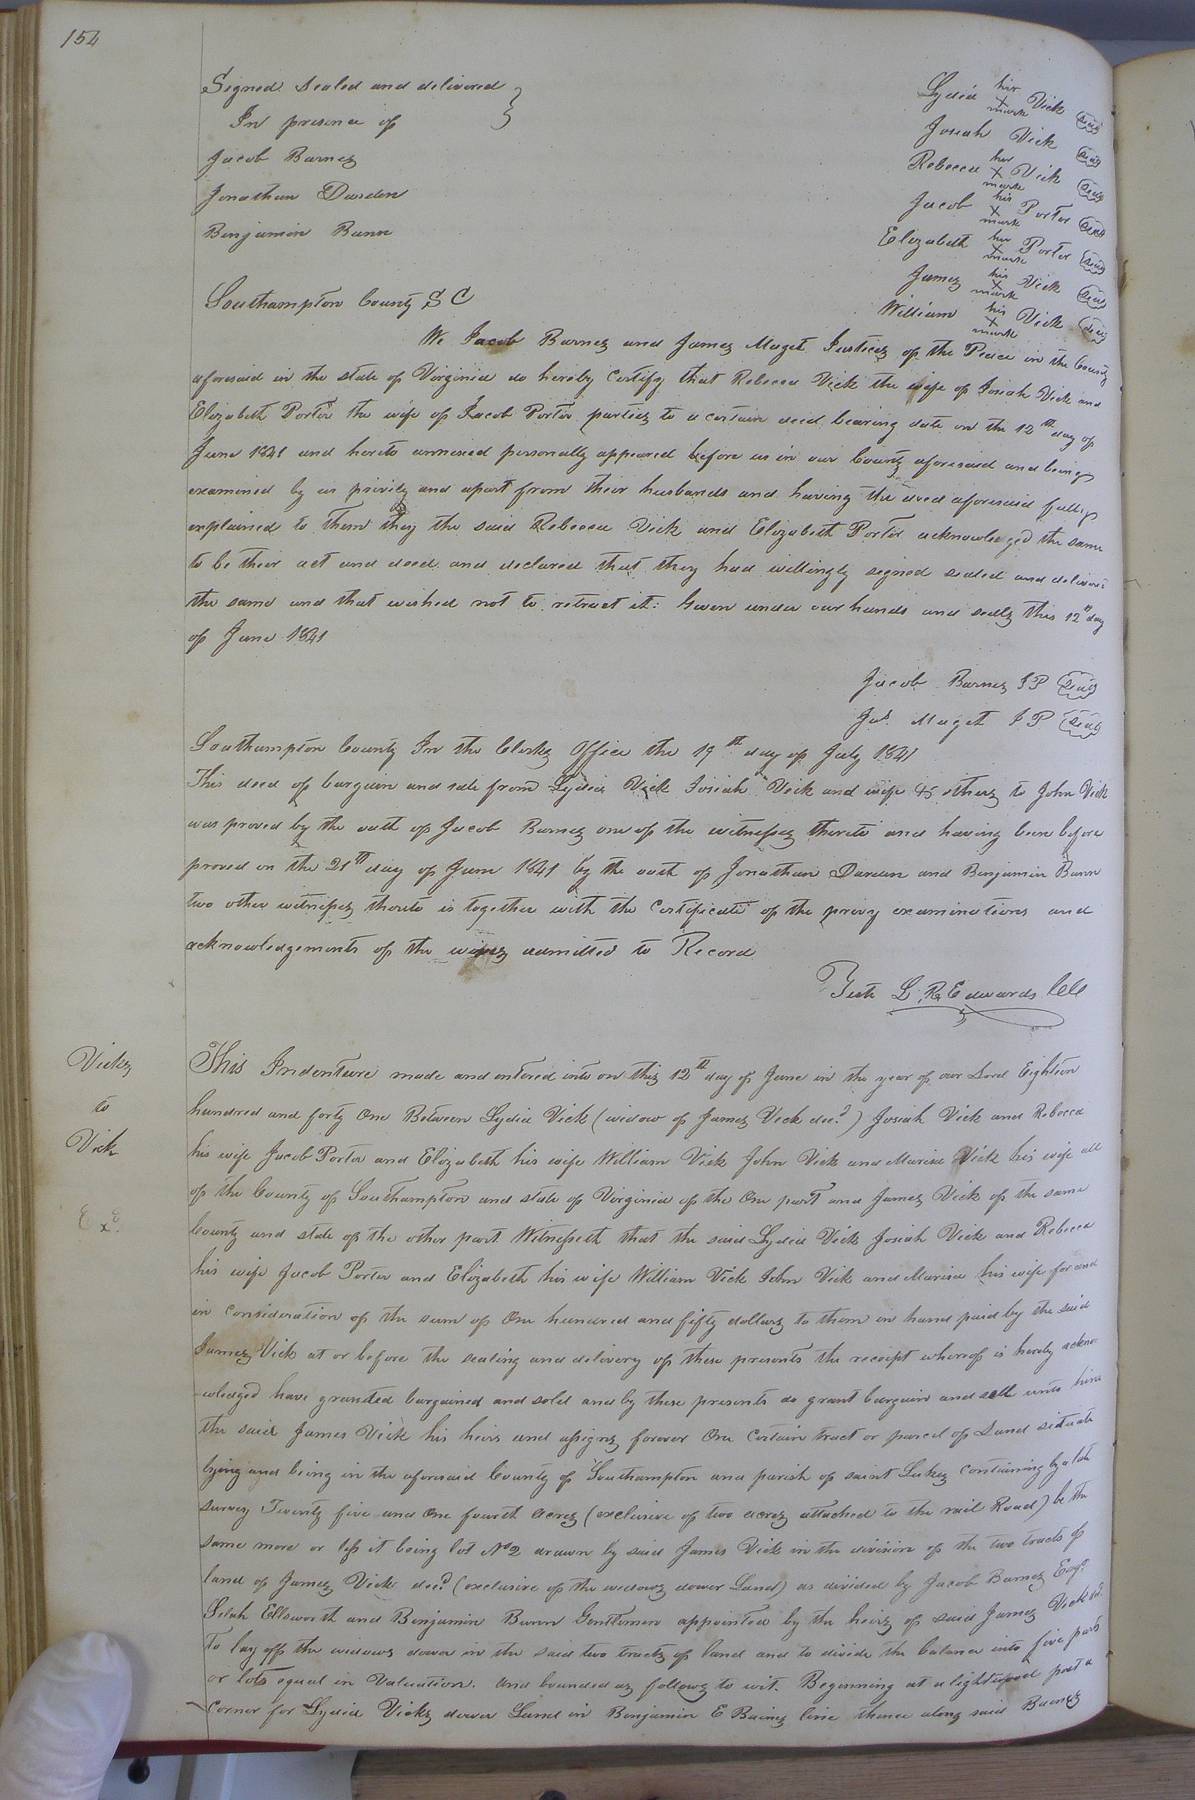 154
Signed Sealed and delivered }
In presence of
Jacob Barnes
Jonathan Darden
Benjamin Bunn
Lydia her X mark Vick (Seal)
Josiah Vick (Seal)
Rebecca her X mark Vick (Seal)
Jacob his X mark Porter (Seal)
Elizabeth her X mark Porter (Seal)
James his X mark Vick (Seal)
William his X mark Vick (Seal)
Southampton County S C
We Jacob Barnes and James Maget Justices of the Peace in the County
aforesaid in the state of Virginia do hereby Certify that Rebecca Vick the wife of Josiah Vick and
Elizabeth Porter the wife of Jacob Porter parties to a certain deed bearing date on the 12th day of
June 1841 and hereto annexed personally appeared before us in our County aforesaid and being
examined by us privily and apart from their husbands and having the deed aforesaid fully
explained to them they the said Rebecca Vick and Elizabeth Porter acknowledged the same
to be their act and deed and declared that they had willingly signed sealed and delivered
the same and that wished not to retract it: Given under our hands and seals this 12th day
of June 1841
Jacob Barnes J P (Seal)
Jas. Maget J P (Seal)
Southampton County In the Clerks Office the 19th day of July 1841
This deed of bargain and sale from Lydia Vick Josiah Vick and wife & others to John Vick
was proved by the oath of Jacob Barnes one of the witnesses thereto and having been before
proved on the 21st day of June 1841 by the oath of Jonathan Darden and Benjamin Bunn
two other witnesses thereto is together with the Certificate of the privy examinations and
acknowledgements of the wives admitted to Record
Teste L. R. Edwards CC
Vicks
to
Vick
Exd.
This Indenture made and entered into on this 12th day of June in the year of our Lord Eighteen
hundred and forty One Between Lydia Vick (widow of James Vick decd.) Josiah Vick and Rebecca
his wife Jacob Porter and Elizabeth his wife William Vick John Vick and Marisa Vick his wife all
of the County of Southampton and state of Virginia of the One part and James Vick of the same
County and state of the other part Witnesseth that the said Lydia Vick Josiah Vick and Rebecca
his wife Jacob Porter and Elizabeth his wife William Vick John Vick and Marisa his wife for and
in consideration of the sum of One hundred and fifty dollars to them in hand paid by the said
James Vick at or before the sealing and delivery of these presents the receipt whereof is hereby ackno
-wledged have granted bargained and sold and by these presents do grant bargain and sell unto him
the said James Vick his heirs and assigns forever One Certain tract or parcel of Land situate
lying and being in the aforesaid County of Southampton and parish of saint Lukes containing by a late
survey Twenty five and One fourth Acres (exclusive of two acres attached to the rail Road) be the
same more or less it being lot No 2 drawn by said James Vick in the division of the two tracts of
land of James Vick decd. (exclusive of the widows dower Land) as divided by Jacob Barnes Esqr.
Selah Ellsworth and Benjamin Bunn Gentlemen appointed by the heirs of said James Vick decd.
To lay off the widows dower in the said two tracts of land and to divide the balance into five parts
or lots equal in Valuation. And bounded as follows to wit. Beginning at a lightwood post a
Corner for Lydia Vicks dower Land in Benjamin E Barnes line thence along said Barnes